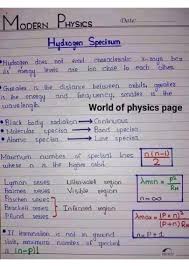 MODERN PHYSICS
Date:
Hydrogen Spectrum
Hydrogen does not emit characteristic x-rays bcz
its energy levels are too close to each other.
Greater is the distance between orbits, greater
is the energy and frequency, smaller is the
wavelength.
World of physics page
Black body radiation → Continuous
Molecular spectra → Band spectra
Atomic spectra → Line spectra
Maximum number of spectral lines
where n is the higher orbit
n(n-1)
2
Lyman series Ultraviolet region
Balmer series Visible region
Paschen series
Brackett series Infrared region
Pfund series
λmin =
n=∞
λmax =
n = P+1
If termination is not in ground
state, maximum number of spectral
(n-P)